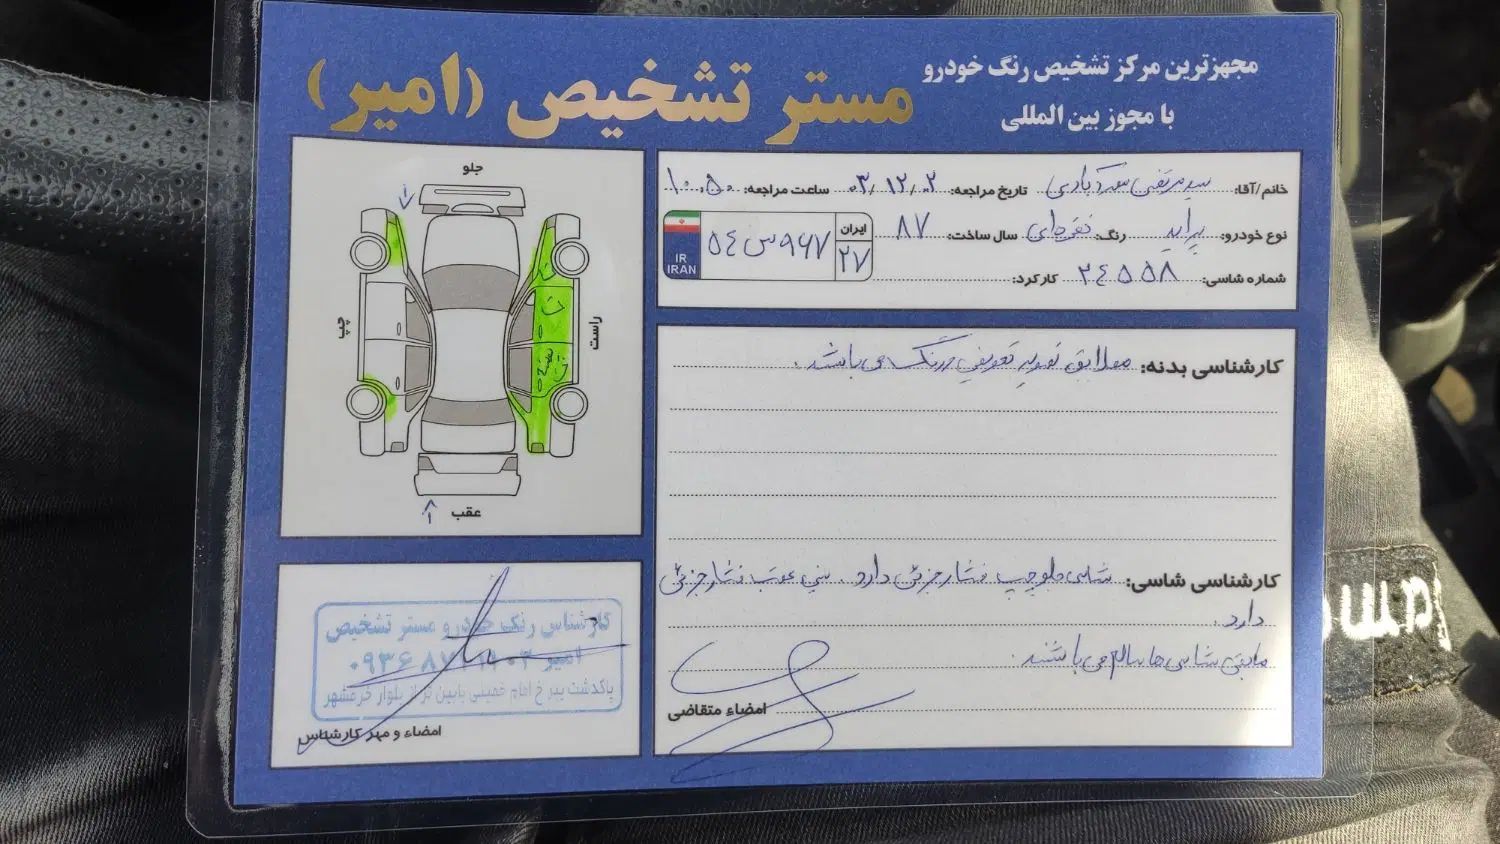 مجهزترین مرکز تشخیص رنگ خودرو
با مجوز بین المللی
مستر تشخیص (امیر)
خانم/آقا: سیدمرتضی تاریخ مراجعه: ۰۳/۱۲/۰۲ ساعت مراجعه: ۱۰:۵۰
نوع خودرو: پراید رنگ: نقره‌ای سال ساخت: ۸۷
ایران ۲۷ ۵۴ س ۹۶۷
IR
IRAN
شماره شاسی: ۲۴۵۵۸ کارکرد:
جلو
چپ
راست
ت
ت
عقب
۱
کارشناسی بدنه: مطابق تصویر تعویض و رنگ می باشد.
کارشناسی شاسی: شاسی جلو چپ فشار جزئی دارد. سینی عقب فشار جزئی
دارد.
مابقی شاسی ها سالم می باشند.
امضاء متقاضی
کارشناس رنگ خودرو مستر تشخیص
امیر
پاکدشت بین خ امام خمینی پایین تر از بلوار خرمشهر
امضاء و مهر کارشناس